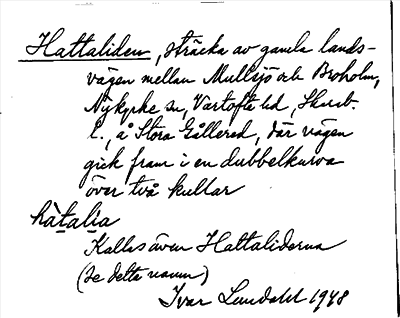 Hattaliden, sträcka av gamla lands-
vägen mellan Mullsjö och Broholm,
Nykyrke sn, Vartofta hd, Skarab.
l., å Stora Gållered, där vägen
gick fram i en dubbelkurva
över två kullar
hàtalia
Kallas även Hattaliderna
(se detta namn)
Ivar Lundahl 1948